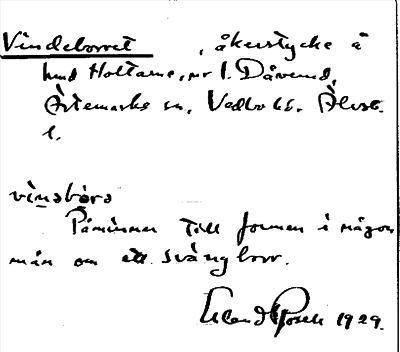 Vindeborret, åkerstycke å
hmd Holtarne, nr 1. Dåverud,
Ärtemarks sn, Vedbo hd. Älvsb.
l.
vin̲əbòrə
Påminner till formen i någon
mån om ett svängborr.
1929.